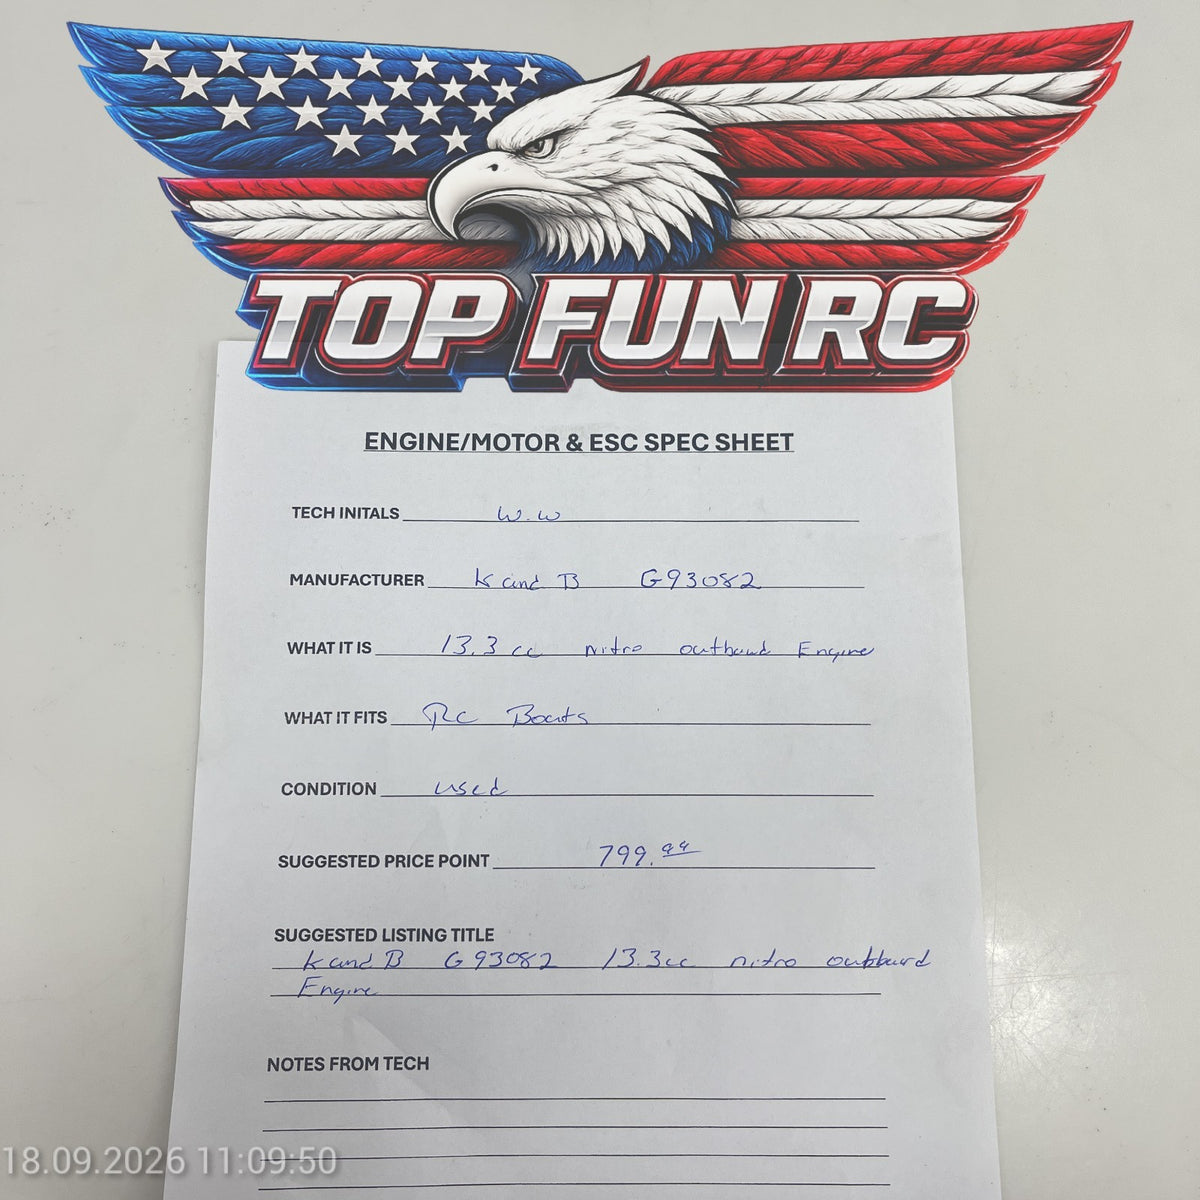 TOP FUN RC
ENGINE/MOTOR & ESC SPEC SHEET
TECH INITALS W.W
MANUFACTURER K and B G93082
WHAT IT IS 13.3cc nitro outboard Engine
WHAT IT FITS Rc Boats
CONDITION used
SUGGESTED PRICE POINT 799.99
SUGGESTED LISTING TITLE
K and B G93082 13.3cc nitro outboard
Engine
NOTES FROM TECH
18.09.2026 11:09:50